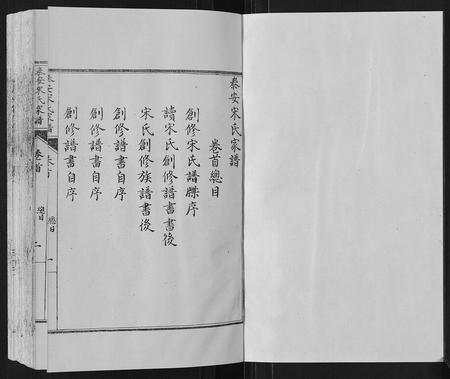 泰安宋氏家譜
卷首總目
創修宋氏譜牒序
讀宋氏創修譜書書後
宋氏創修族譜書後
創修譜書自序
創修譜書自序
創修譜書自序
泰安宋氏家譜
卷首
總目
一
泰安宋氏家譜
卷首
總目
二